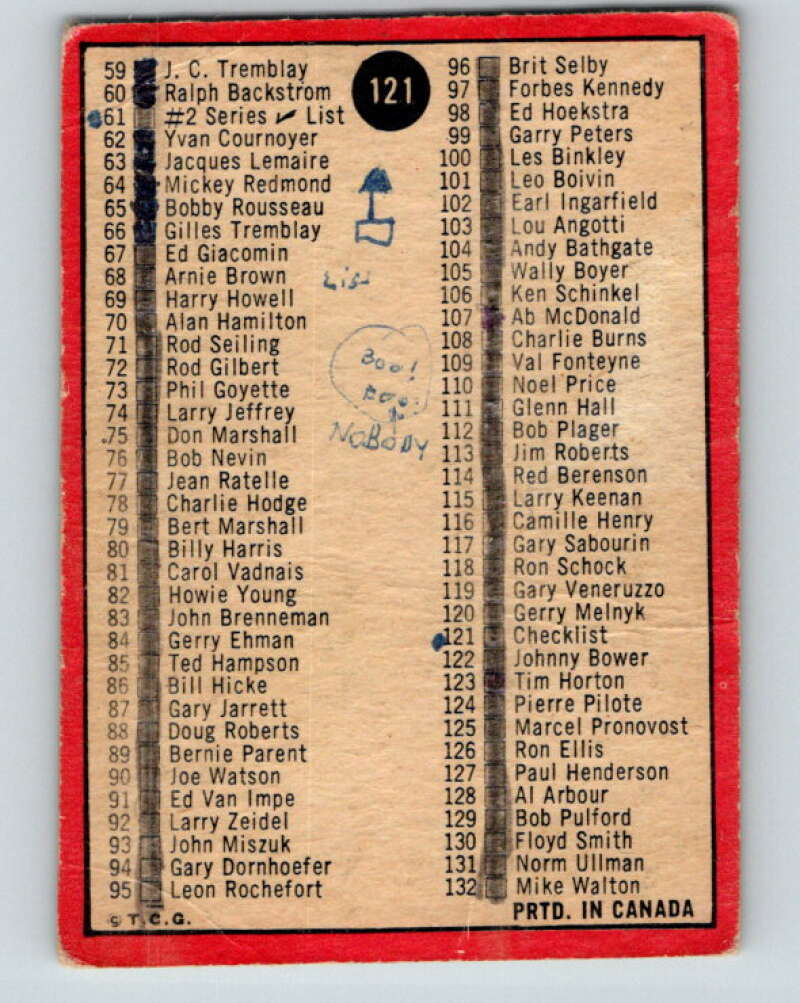 121
59 J. C. Tremblay
60 Ralph Backstrom
61 #2 Series ✓ List
62 Yvan Cournoyer
63 Jacques Lemaire
64 Mickey Redmond
65 Bobby Rousseau
66 Gilles Tremblay
67 Ed Giacomin
68 Arnie Brown
69 Harry Howell
70 Alan Hamilton
71 Rod Seiling
72 Rod Gilbert
73 Phil Goyette
74 Larry Jeffrey
75 Don Marshall
76 Bob Nevin
77 Jean Ratelle
78 Charlie Hodge
79 Bert Marshall
80 Billy Harris
81 Carol Vadnais
82 Howie Young
83 John Brenneman
84 Gerry Ehman
85 Ted Hampson
86 Bill Hicke
87 Gary Jarrett
88 Doug Roberts
89 Bernie Parent
90 Joe Watson
91 Ed Van Impe
92 Larry Zeidel
93 John Miszuk
94 Gary Dornhoefer
95 Leon Rochefort
© T.C.G.
Boo!
NoBoDy
96 Brit Selby
97 Forbes Kennedy
98 Ed Hoekstra
99 Garry Peters
100 Les Binkley
101 Leo Boivin
102 Earl Ingarfield
103 Lou Angotti
104 Andy Bathgate
105 Wally Boyer
106 Ken Schinkel
107 Ab McDonald
108 Charlie Burns
109 Val Fonteyne
110 Noel Price
111 Glenn Hall
112 Bob Plager
113 Jim Roberts
114 Red Berenson
115 Larry Keenan
116 Camille Henry
117 Gary Sabourin
118 Ron Schock
119 Gary Veneruzzo
120 Gerry Melnyk
121 Checklist
122 Johnny Bower
123 Tim Horton
124 Pierre Pilote
125 Marcel Pronovost
126 Ron Ellis
127 Paul Henderson
128 Al Arbour
129 Bob Pulford
130 Floyd Smith
131 Norm Ullman
132 Mike Walton
PRTD. IN CANADA